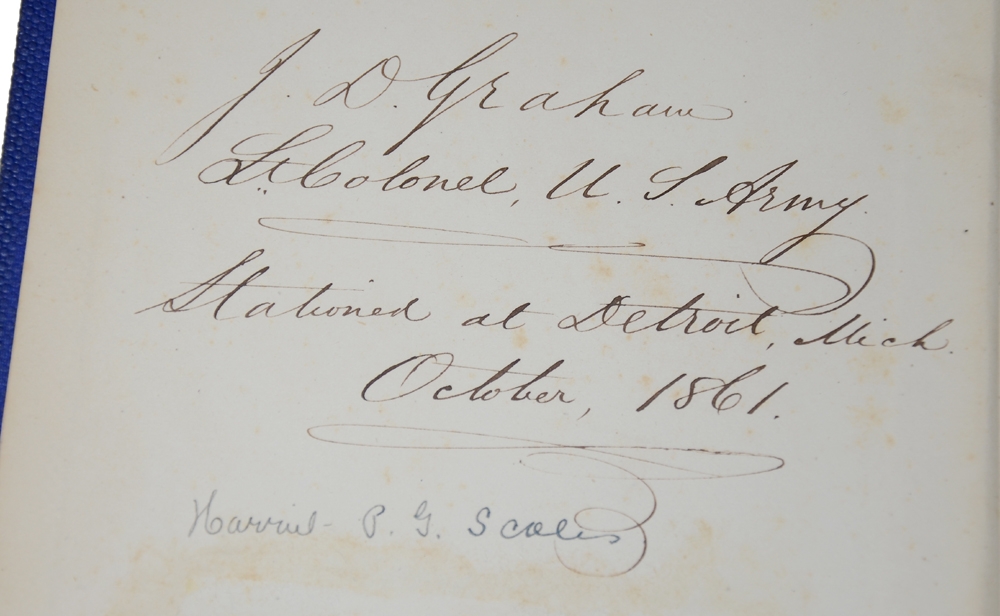 J. D. Graham
Lt. Colonel, U. S. Army.
Stationed at Detroit, Mich.
October, 1861.
Harriet P. G. Scales